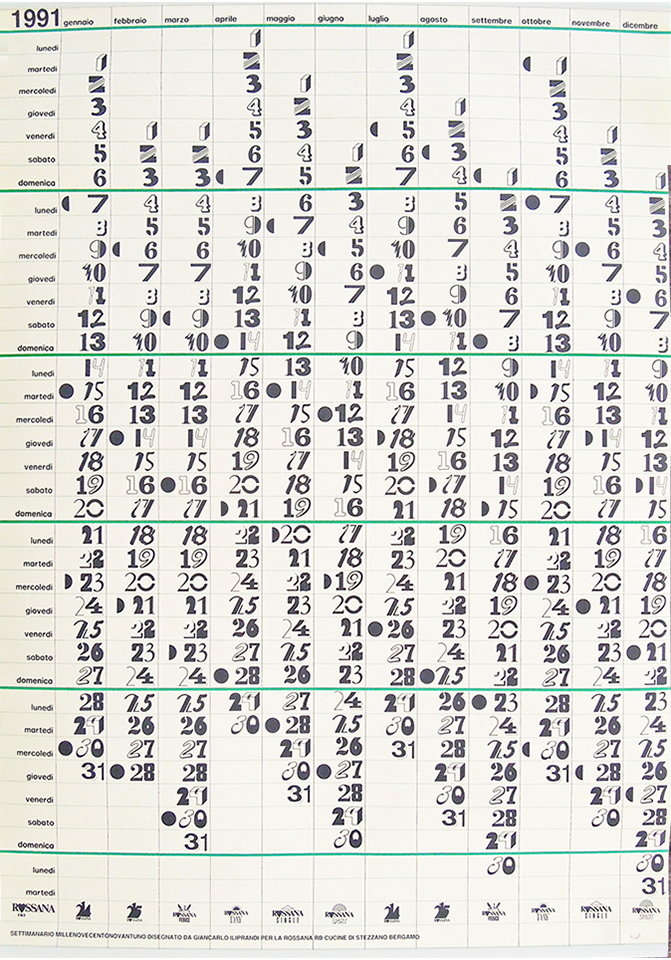 1991 gennaio febbraio marzo aprile maggio giugno luglio agosto settembre ottobre novembre dicembre
lunedi 1 1
martedi 1 2 2 1
mercoledi 2 3 1 3 2
giovedi 3 4 2 4 1 3
venerdi 4 1 1 5 3 5 2 4 1
sabato 5 2 2 6 4 1 6 3 5 2
domenica 6 3 3 7 5 2 7 4 1 6 3 1
lunedi 7 4 4 8 6 3 8 5 2 7 4 2
martedi 8 5 5 9 7 4 9 6 3 8 5 3
mercoledi 9 6 6 10 8 5 10 7 4 9 6 4
giovedi 10 7 7 11 9 6 11 8 5 10 7 5
venerdi 11 8 8 12 10 7 12 9 6 11 8 6
sabato 12 9 9 13 11 8 13 10 7 12 9 7
domenica 13 10 10 14 12 9 14 11 8 13 10 8
lunedi 14 11 11 15 13 10 15 12 9 14 11 9
martedi 15 12 12 16 14 11 16 13 10 15 12 10
mercoledi 16 13 13 17 15 12 17 14 11 16 13 11
giovedi 17 14 14 18 16 13 18 15 12 17 14 12
venerdi 18 15 15 19 17 14 19 16 13 18 15 13
sabato 19 16 16 20 18 15 20 17 14 19 16 14
domenica 20 17 17 21 19 16 21 18 15 20 17 15
lunedi 21 18 18 22 20 17 22 19 16 21 18 16
martedi 22 19 19 23 21 18 23 20 17 22 19 17
mercoledi 23 20 20 24 22 19 24 21 18 23 20 18
giovedi 24 21 21 25 23 20 25 22 19 24 21 19
venerdi 25 22 22 26 24 21 26 23 20 25 22 20
sabato 26 23 23 27 25 22 27 24 21 26 23 21
domenica 27 24 24 28 26 23 28 25 22 27 24 22
lunedi 28 25 25 29 27 24 29 26 23 28 25 23
martedi 29 26 26 30 28 25 30 27 24 29 26 24
mercoledi 30 27 27 29 26 31 28 25 30 27 25
giovedi 31 28 28 30 27 29 26 31 28 26
venerdi 29 31 28 30 27 29 27
sabato 30 29 31 28 30 28
domenica 31 30 29 29
lunedi 30 30
martedi 31
ROSSANA 24 25 ROSSANA ROSSANA DAY ROSSANA SINGLE ROSSANA 24 25 ROSSANA ROSSANA DAY ROSSANA SINGLE ROSSANA
SETTIMANARIO MILLENOVECENTONOVANTUNO DISEGNATO DA GIANCARLO ILIPRANDI PER LA ROSSANA RB CUCINE DI STEZZANO BERGAMO